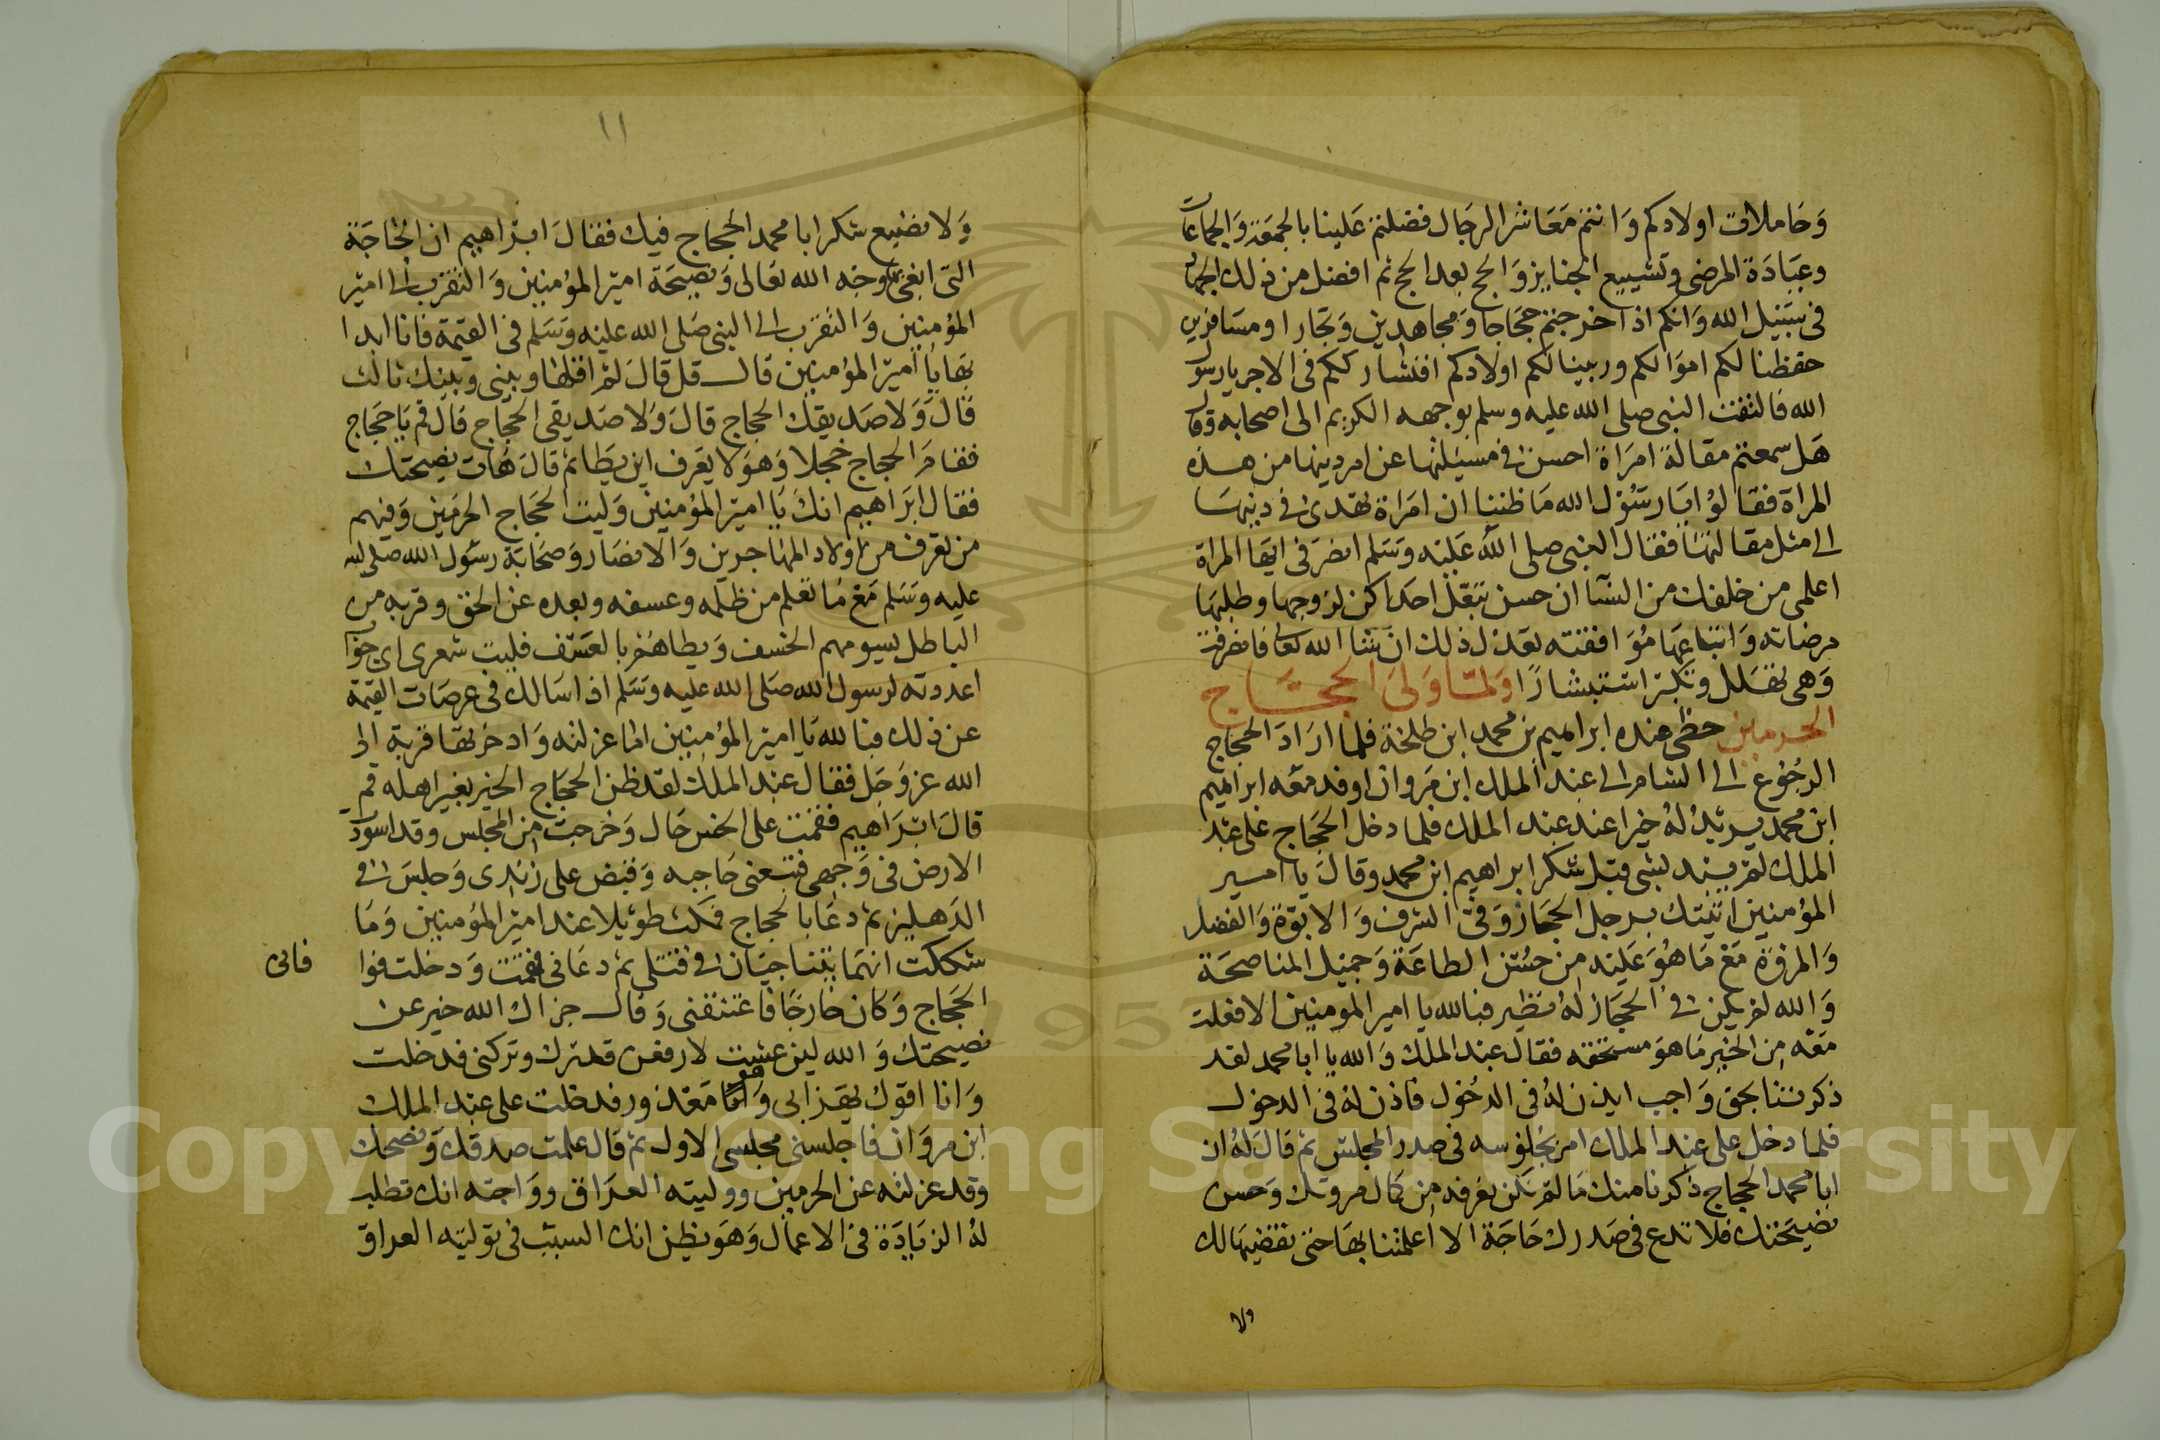 وَحَاملات اولادكم وَانتم مَعَاشر الرجَال فضلتم عَلينا بالجمعَة وَالجماعَات
وعيَادَة المرضى وتشييع الجنايز وَالحج بعد الحج ثم افضل من ذلك الجهاد
فى سَبيل الله وَانكم اذا خرجتم حجاجا وَمجاهدين وَتجارا او مسَافرين
حفظنا لكم اموَالكم وربينا لكم اولادكم افنشارككم فى الاجر يا رسول
الله فالتفت النبى صلى الله عليه وسلم بوجهه الكريم الى اصحابه وقال
هَل سمعتم مقالة امرَاة احسن فى مسيئلتها عن امر دينها من هذه
المراة فقالوا يا رسُول الله مَا ظننا ان امرَاة تهتدى فى دينهَا
الى مثل مقالتها فقال النبى صلى الله عَليه وَسَلم انصرفى ايتها المراة
اعلمى من خلفك من النسَا ان حسن تبعل احداكن لزوجها وطلبهَا
مرضاته وَاتباعهَا مُوَافقته يعَدل ذلك ان شا الله تعالى فانصرفت
وَهى تهَلل وتكبر استبشارًا وَلمّا وَلى الحجّاج
الحرمين حظى عنده ابراهيم بن محمد ابن طلحَة فلما ارَادَ الحجاج
الرجُوع الى الشام الى عبد الملك ابن مَروان اوفد معَه ابراهيم
ابن محمد يريد له خيرا عند عبد الملك فلما دخل الحجاج على عبد
الملك لم يبد بشى قبل شكر ابراهيم ابن محمد وقال يا امير
المؤمنين اتيتك برجل الحجاز وَفى الشرف وَالابوة وَالفضل
وَالمروَة مَعَ مَا هوَ عَليه من حسُن الطاعَة وَجميل المناصحَة
وَالله لم يكن فى الحجَاز لهُ نظير فبالله يا امير المومنين الا فعلت
معَه من الخير مَا هوَ مستحقه فقال عبد الملك وَالله يا ابا محمد لقد
ذكرتنا بحق وَاجب ايذن لهُ فى الدخُول فاذن له فى الدخول
فلما دخل على عبد الملك امر بجُلوسه فى صدر المجلس ثم قالَ لهُ ان
ابا محمد الحجاج ذكرنا منك مَا لم نكن نعرفه من كمال مروتك وَحسن
نصيحَتك فلا تدع فى صَدرك حَاجَة الا اعلمتنا بهَا حتى نقضيهَا لك
ولا
١١
وَلا نضيع شكر ابا محمد الحجاج فيك فقالَ ابراهيم ان الحَاجَة
التى ابغى بها وجه الله تعَالى وَنصيحَة امير المؤمنين وَالتقرب الى امير
المؤمنين وَالتقرب الى النبى صَلى الله عليه وَسَلم فى القيمَة فانا ابدا
بهَا يا امير المؤمنين قال قل قالَ لم اقلها وبينى وَبينك ثالث
قالَ وَلا صَديقك الحجاج قالَ وَلا صَديقى الحجَاج قالَ قم يَا حجاج
فقامَ الحجاج خجلا وَهوَ لا يعَرف اين يَطا ثم قالَ هَات نصيحتك
فقال ابراهيم انكَ يَا امير المؤمنين وَليت الحجاج الحرمَين وَفيهم
من تعرف من اولاد المهاجرين وَالانصَار وَصحَابة رسُول الله صلى الله
عليه وسَلم مَعَ مَا تعلم من ظلمه وعسفه وبعده عن الحق وقربه من
الباطل يسومهم الخسف وَيطاهُم بالعسف فليت شعرى اى جواب
اعددته لرسول الله صَلى الله عليه وَسَلم اذا سَالك فى عرصَات القيمَة
عن ذلك فبالله يا امير المؤمنين اما عزلته وَادخر بها قربة الى
الله عز وَجل فقال عَبد الملك لقد ظن الحجَاج الخير بغير اهله قم
قالَ ابرَاهيم فقمت على اخس حَال وَخرجت من المجلس وقد اسود
الارض فى وَجهى فتبعنى حَاجبه وَقبض على زندى وَجلسَ فى
الدَهليز ثم دعَا بالحجاج فمكث طويلا عند امير المؤمنين وَمَا
شككت انهمَا يتناجيَان فى قتلى ثم دعَانى فقمت وَدخلت فوا
فانى
الحَجَاج وَكان خارجَا فاعتنقنى وَقال جزاك الله خير عن
نصيحتك وَالله لين عشت لارفعن قدرك وتركنى فدخلت
وَانا اقول يهزا بى وَهو معَذور فدخلت على عبد الملك
ابن مروَان فاجلسنى مجلسى الاول ثم قال علمت صدقك وَنصحك
وقد عزلته عن الحرمين ووليته العرَاق ووَاجته انك تطلب
لهُ الزيادَة فى الاعمال وَهوَ يظن انك السبب فى توليته العراق
Copyright © King Saud University
1957